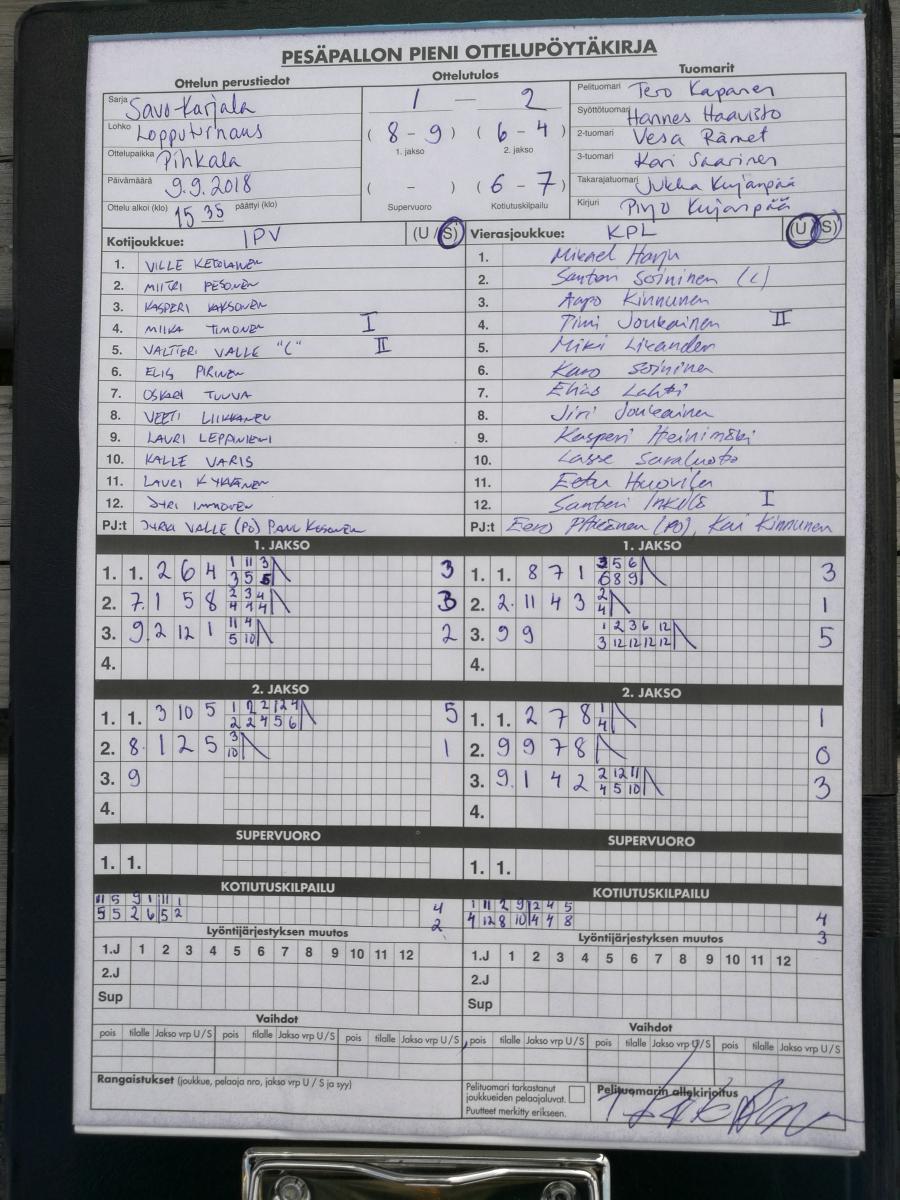 PESÄPALLON PIENI OTTELUPÖYTÄKIRJA
Ottelun perustiedot
Sarja Savo-Karjala
Lohko Lopputurnaus
Ottelupaikka Pihkala
Päivämäärä 9.9.2018
Ottelu alkoi (klo) 15 35 päättyi (klo)
Ottelutulos
1 — 2
( 8 - 9 ) ( 6 - 4 )
1. jakso 2. jakso
( - ) ( 6 - 7 )
Supervuoro Kotiutuskilpailu
Tuomarit
Pelituomari Tero Kapanen
Syöttötuomari Hannes Haavisto
2-tuomari Vesa Rämet
3-tuomari Kari Saarinen
Takarajatuomari Jukka Kujanpää
Kirjuri Pirjo Kujanpää
Kotijoukkue: IPV (U / S)
1. VILLE KETOLAINEN
2. MIITRI PESONEN
3. KASPERI
4. MIIKA TIMONEN I
5. VALTTERI VALLE "C" II
6. ELIS PIRINEN
7. OSKARI TUUVA
8. VEETI LIIKKANEN
9. LAURI LEPPÄNIEMI
10. KALLE VARIS
11. LAURI
12. JYRI IMMONEN
PJ:t JYRKI VALLE (PJ) PAULI KOSONEN
Vierasjoukkue: KPL (U / S)
1. Mikael Harju
2. Santeri Soininen (C)
3. Aapo Kinnunen
4. Timi Joukainen II
5. Miki Likander
6. Karo Soininen
7. Elias Lahti
8. Jiri Joukainen
9. Kasperi Heinimäki
10. Lasse Saraluoto
11. Eetu Huovila
12. Santeri Inkilä I
PJ:t Eero Pitkänen (PJ), Kari Kinnunen
1. JAKSO
1. 1. 2 6 4 1 11 3 3
3 5 5
2. 7. 1 5 8 2 3 4 3
4 4 4
3. 9. 2 12 1 11 4 2
5 10
4.
1. JAKSO
1. 1. 8 7 1 3 5 6 3
6 8 9
2. 2. 11 4 3 2 1
4
3. 9 9 1 2 3 6 12 5
3 12 12 12 12
4.
2. JAKSO
1. 1. 3 10 5 1 12 2 12 4 5
2 2 4 5 6
2. 8. 1 2 5 3 1
10
3. 9
4.
2. JAKSO
1. 1. 2 7 8 1 1
4
2. 9 9 7 8 0
3. 9. 1 4 2 2 12 11 3
4 5 10
4.
SUPERVUORO
1. 1.
SUPERVUORO
1. 1.
KOTIUTUSKILPAILU
11 5 9 1 11 1 4
5 5 2 6 5 2 2
KOTIUTUSKILPAILU
1 11 2 9 2 4 5 4
4 12 8 10 4 4 8 3
Lyöntijärjestyksen muutos
1.J 1 2 3 4 5 6 7 8 9 10 11 12
2.J
Sup
Lyöntijärjestyksen muutos
1.J 1 2 3 4 5 6 7 8 9 10 11 12
2.J
Sup
Vaihdot
pois tilalle Jakso vrp U / S pois tilalle Jakso vrp U / S pois tilalle Jakso vrp U / S
Vaihdot
pois tilalle Jakso vrp U / S pois tilalle Jakso vrp U / S pois tilalle Jakso vrp U / S
Rangaistukset (joukkue, pelaaja nro, jakso vrp U / S ja syy)
Pelituomari tarkastanut
joukkueiden pelaajaluvat.
Puutteet merkitty erikseen.
Pelituomarin allekirjoitus